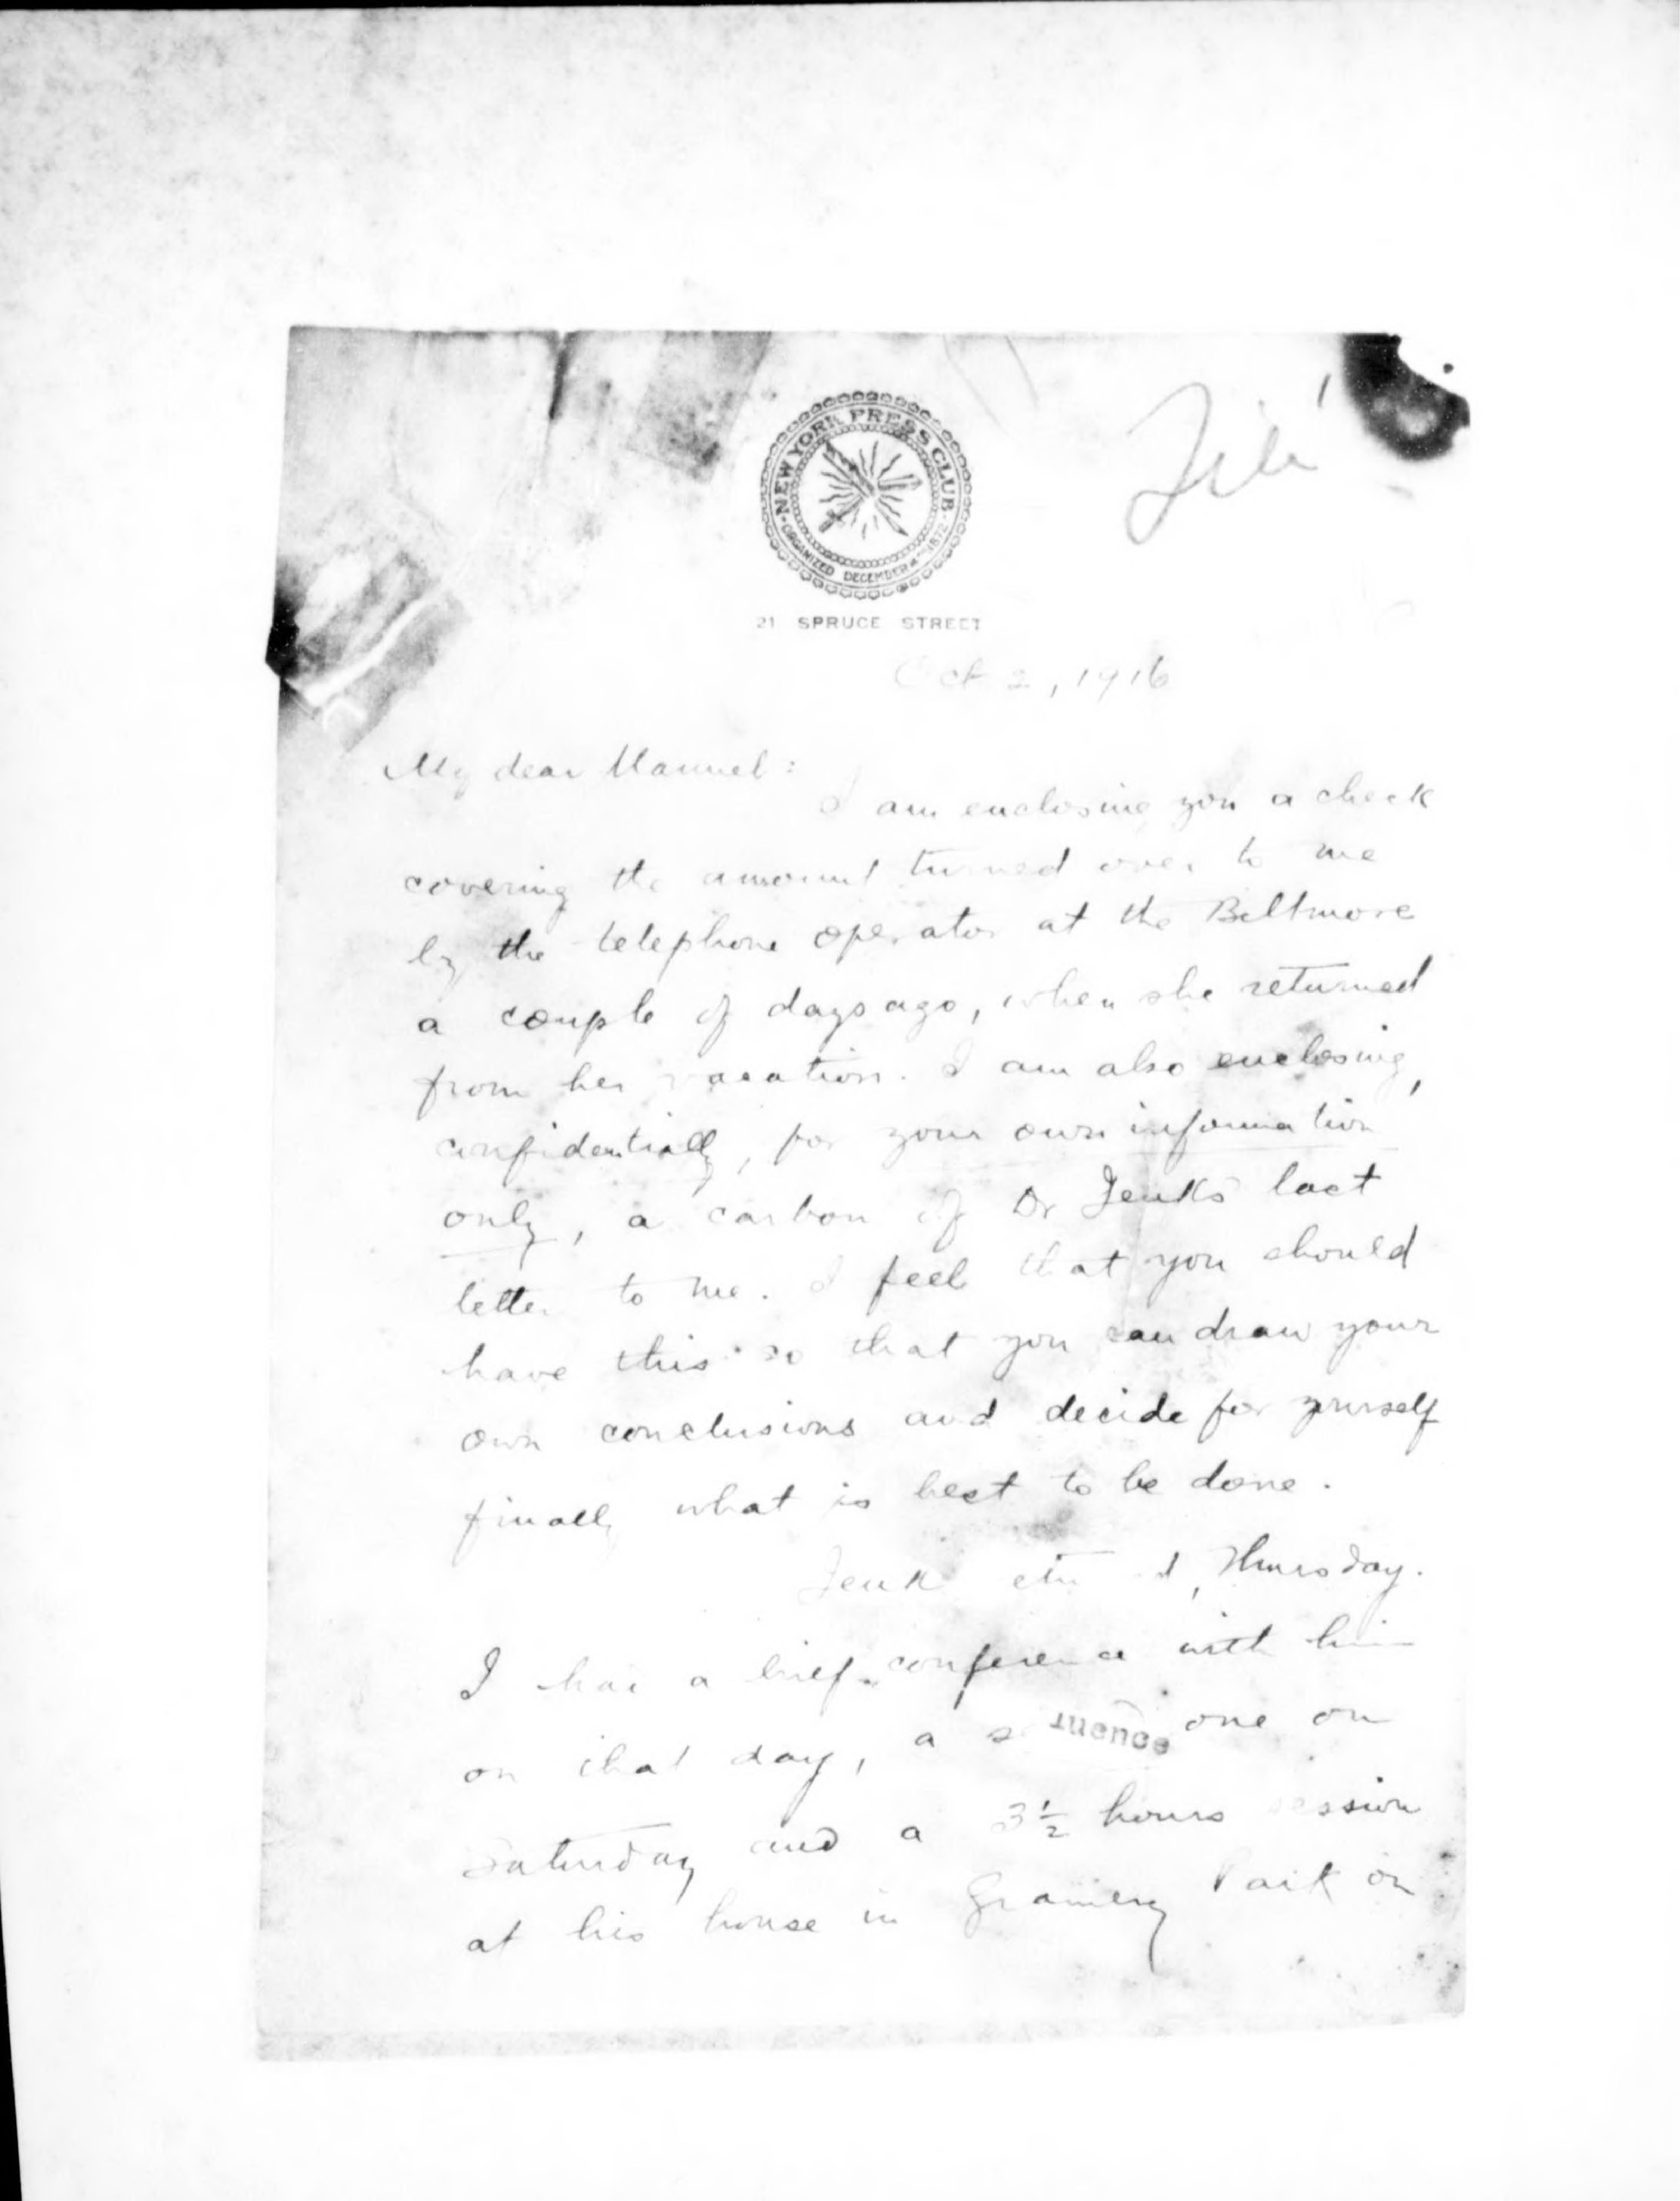 NEW YORK PRESS CLUB
ORGANIZED DECEMBER 1872
21 SPRUCE STREET
File
Oct 2, 1916
My dear Manuel:
I am enclosing you a check
covering the amount turned over to me
by the telephone operator at the Biltmore
a couple of days ago, when she returned
from her vacation. I am also enclosing,
confidentially, for your own information
only, a carbon of Dr Jenks last
letter to me. I feel that you should
have this so that you can draw your
own conclusions and decide for yourself
finally what is best to be done.
Jenk Thursday.
I had a brief conference with him
on that day, a one on
Saturday and a 3½ hours session
at his house in Gramercy Park on